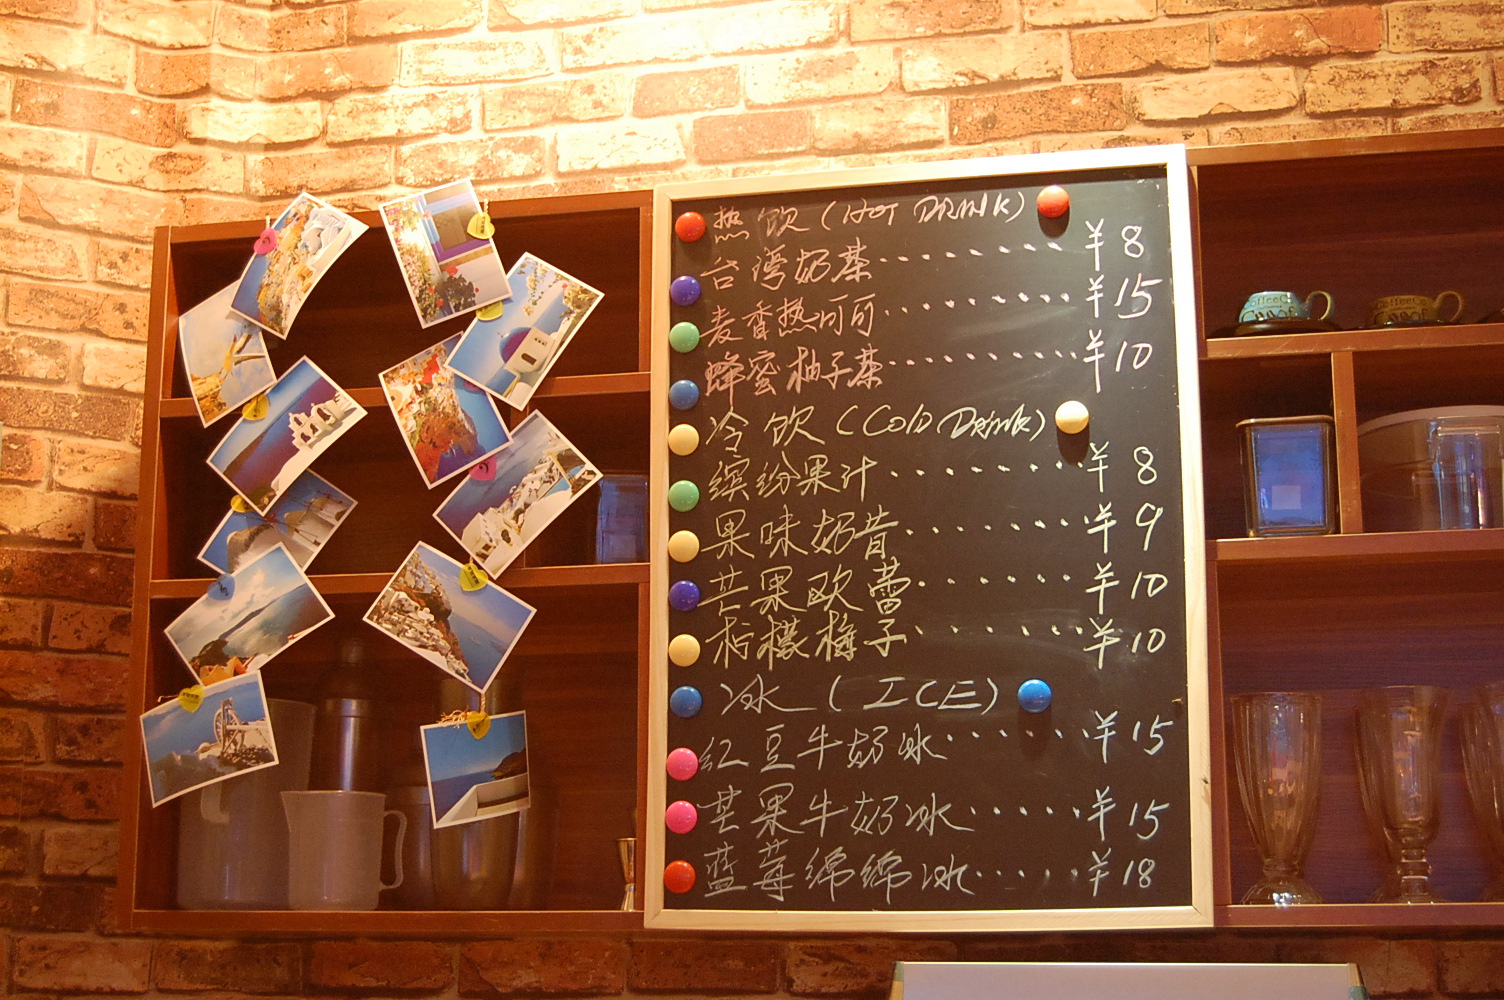 热饮(HOT DRINK)
台湾奶茶··········¥8
麦香热可可··········¥15
蜂蜜柚子茶··········¥10
冷饮(Cold Drink)
缤纷果汁··········¥8
果味奶昔··········¥9
芒果欧蕾··········¥10
柠檬梅子··········¥10
冰(ICE)
红豆牛奶冰········¥15
芒果牛奶冰······¥15
蓝莓绵绵冰······¥18
CoffeeCo
CoffeeCo